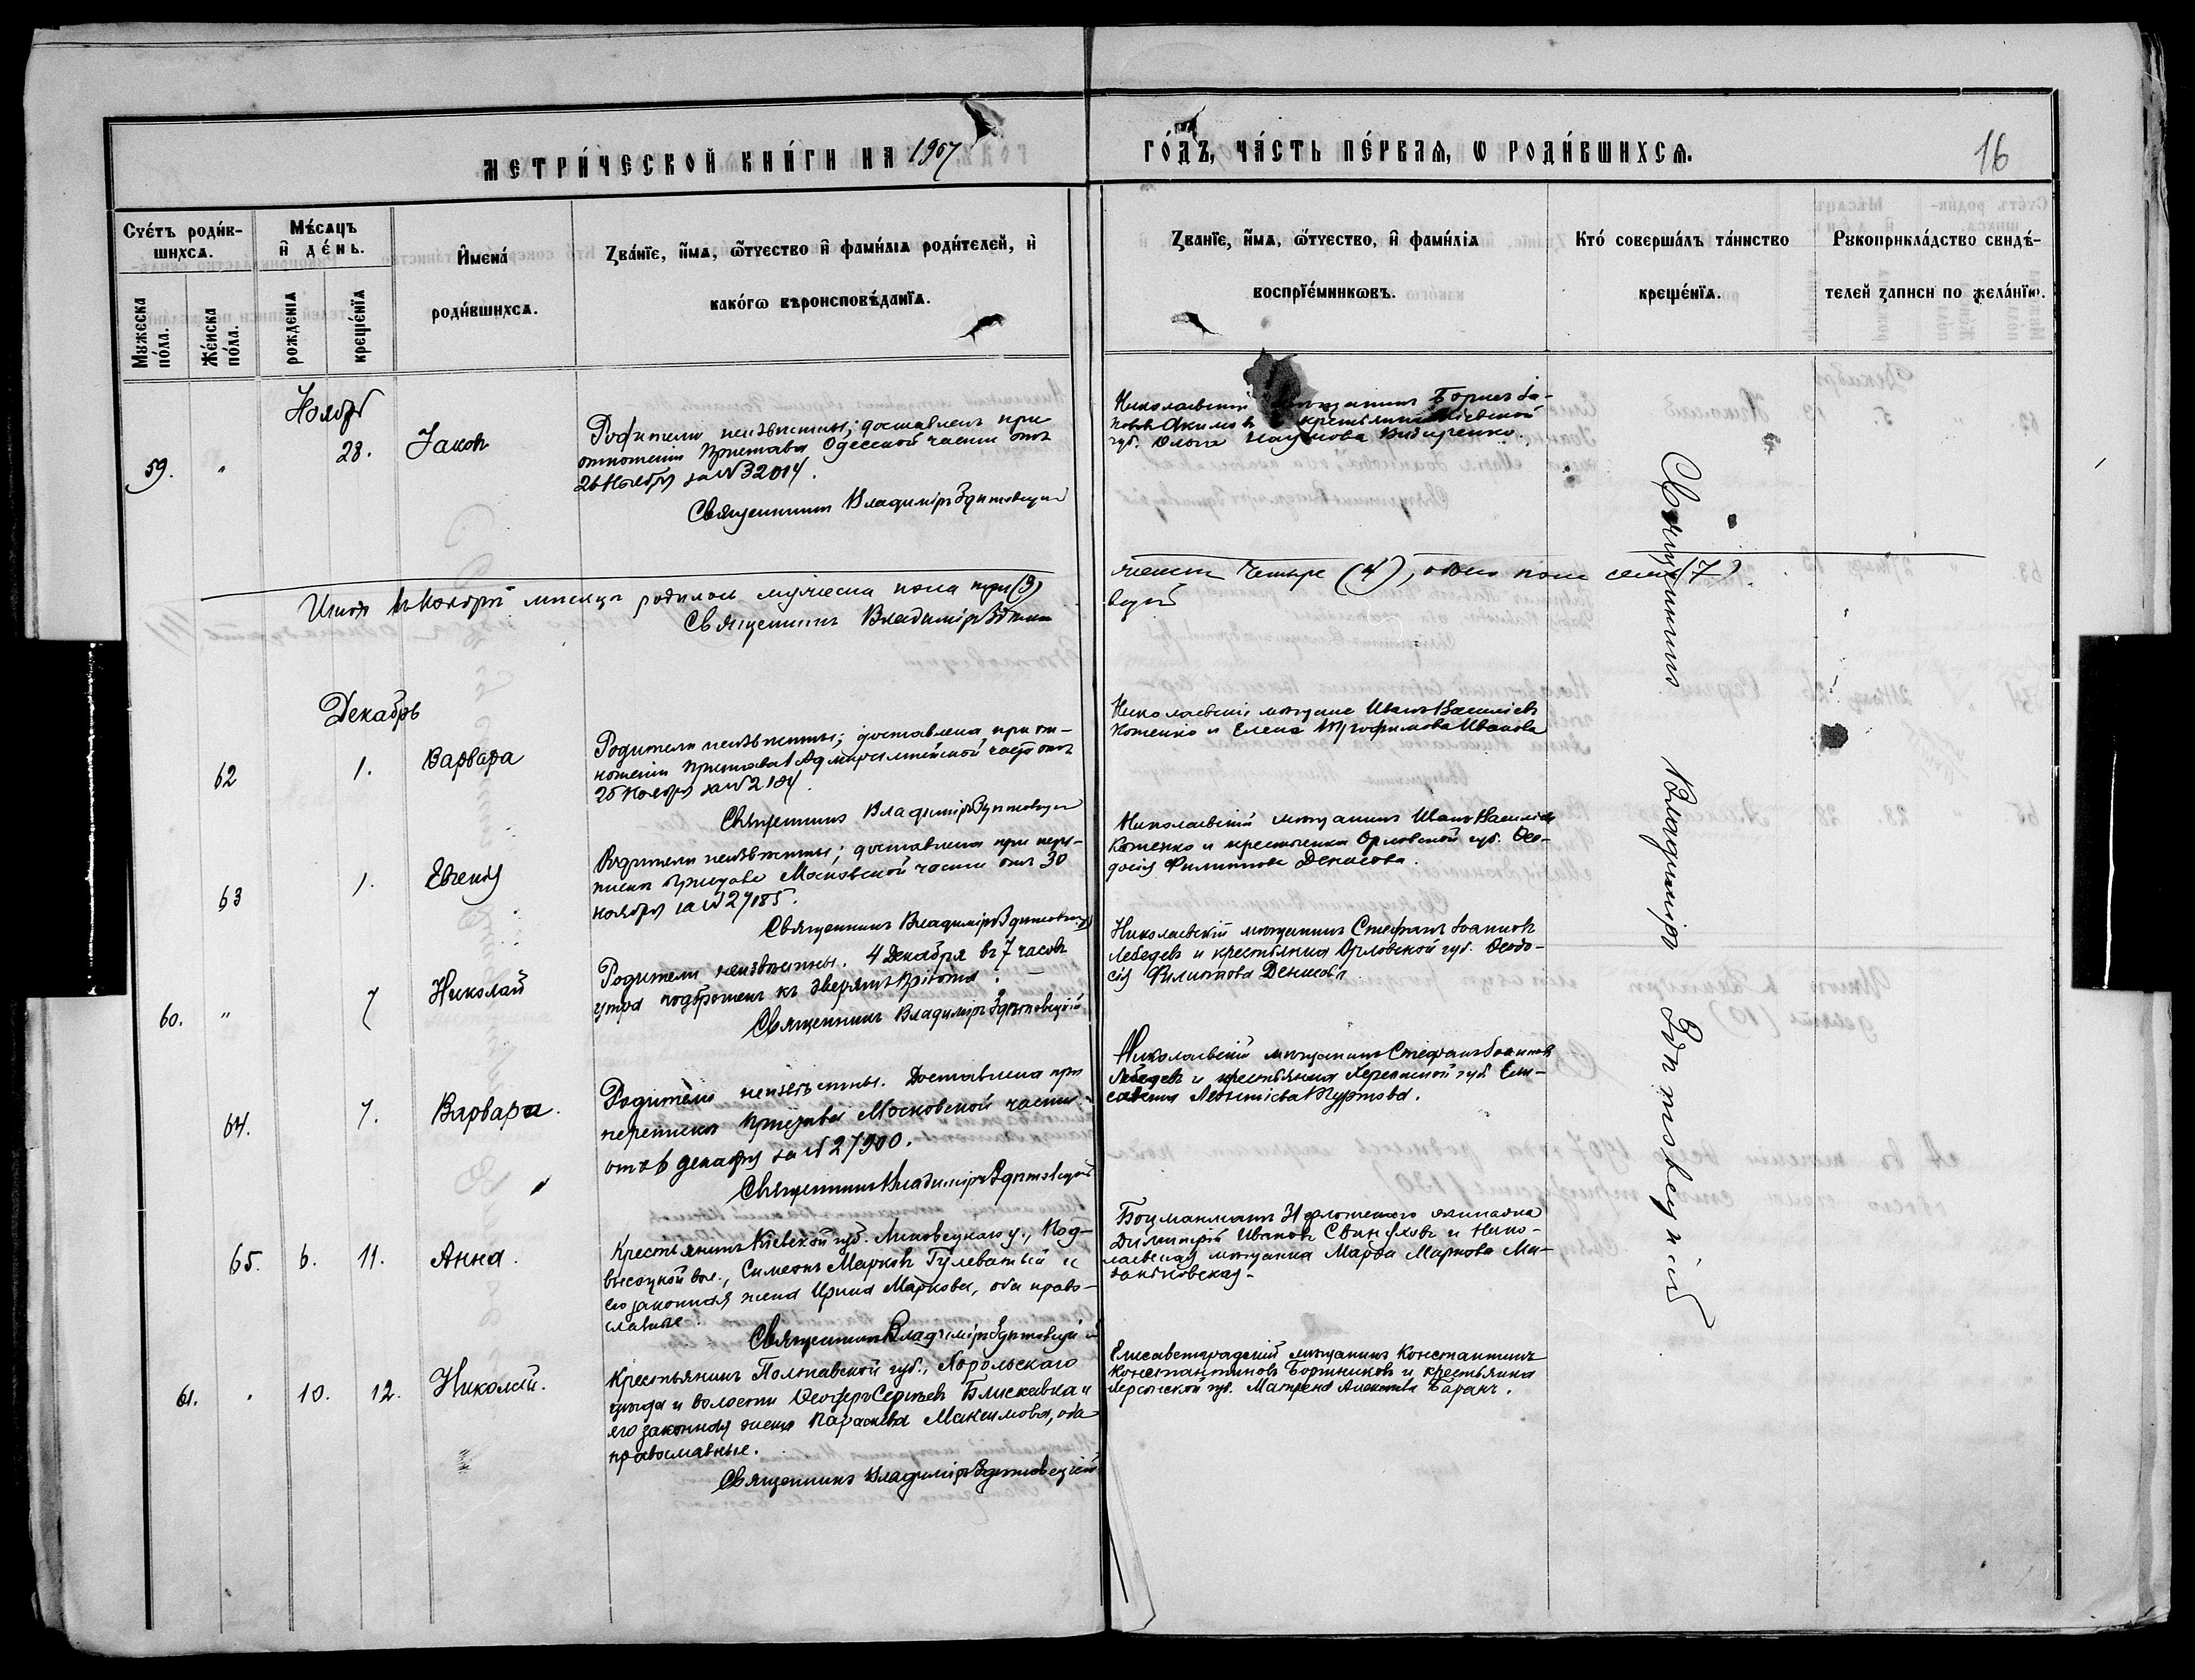 МЕТРИ́ЧЕСКОЙ КНИ́ГИ НА 1907
ГО́ДЪ, ЧА́СТЬ ПЕ́РВАѦ, Ѡ РОДИ́ВШИХСѦ.
16
Счетъ роди́в-
шихсѧ.
Мужеска
по́ла.
Же́нска
по́ла.
Мѣ́сѧцъ
и де́нь.
рожденїѧ
креще́нїѧ
Имена́
роди́вшихсѧ.
Зва́нїе, и́мѧ, ѻ́тчество и фами́лїѧ роди́телей, и
како́гѡ вѣроисповѣ́данїѧ.
Зва́нїе, и́мѧ, ѻ́тчество, и фами́лїѧ
воспрїе́мникѡвъ.
Кто́ соверша́лъ та́инство
креще́нїѧ.
Рукоприкла́дство свидѣ́-
телей записи по жела́нїю.
Ноябрь
59. " 28. Іаковъ
Родители неизвѣстны; доставленъ при
отношеніи Пристава Одесской части отъ
26 Ноября за № 32014.
Священникъ Владиміръ Здитовецкій
Николаевскій мѣщанинъ Борисъ Іа-
ковлевъ Акимовъ и крестьянка Кіевской
губ. Ольга Наумова
Итого въ Ноябрѣ мѣсяцѣ родилось мужеска пола три (3)
женска четыре (4), обоего пола семь (7).
Священникъ Владиміръ Здито
вецкій
Декабрь
62 1. Варвара
Родители неизвѣстны; доставлена при от-
ношеніи Пристава Адмиралтейской части отъ
25 Ноября за № 2104.
Священникъ Владиміръ Здитовецкій
Николаевскіе мѣщане Иванъ Васильевъ
Котенко и Елена Трофимова Иванова
63 1. Евгенія
Родители неизвѣстны; доставлена при пере-
пискѣ Пристава Московской части отъ 30
Ноября за № 27185.
Священникъ Владиміръ Здитовецкій
Николаевскій мѣщанинъ Иванъ Васильевъ
Котенко и крестьянка Орловской губ. Ѳео-
досія Филиппова Денисова.
60. " 7 Николай
Родители неизвѣстны. 4 Декабря въ 7 часовъ
утра подброшенъ къ дверямъ Пріюта. —
Священникъ Владиміръ Здитовецкій
Николаевскій мѣщанинъ Стефанъ Іоанновъ
Лебедевъ и крестьянка Орловской губ. Ѳеодо-
сія Филиппова Денисова
64. 7. Варвара.
Родители неизвѣстны. Доставлена при
перепискѣ Пристава Московской части
отъ 6 декабря за № 27900.
Священникъ Владиміръ Здитовецкій
Николаевскій мѣщанинъ Стефанъ Іоанновъ
Лебедевъ и крестьянка Херсонской губ. Ели-
савета Леонтіева
65. 6. 11. Анна.
Крестьянинъ Кіевской губ. Липовецкаго у., Под-
высоцкой вол., Симеонъ Марковъ Гулеватый и
его законная жена Ирина Маркова, оба право-
славные.
Священникъ Владиміръ Здитовецкій
Боцманматъ 31 флотскаго экипажа
Димитрій Ивановъ и Нико-
лаевская мѣщанка Марѳа Маркова
61. " 10. 12. Николай.
Крестьянинъ Полтавской губ., Хорольскаго
уѣзда и волости Ѳеодоръ Сергѣевъ Блискавка и
его законная жена Параскева Максимова, оба
православные.
Священникъ Владиміръ Здитовецкій
Елисаветградскій мѣщанинъ Константинъ
Константиновъ Бортниковъ и крестьянка
Херсонской губ. Матрена Алексѣева Баранъ.
Священникъ Владиміръ Здитовецкій